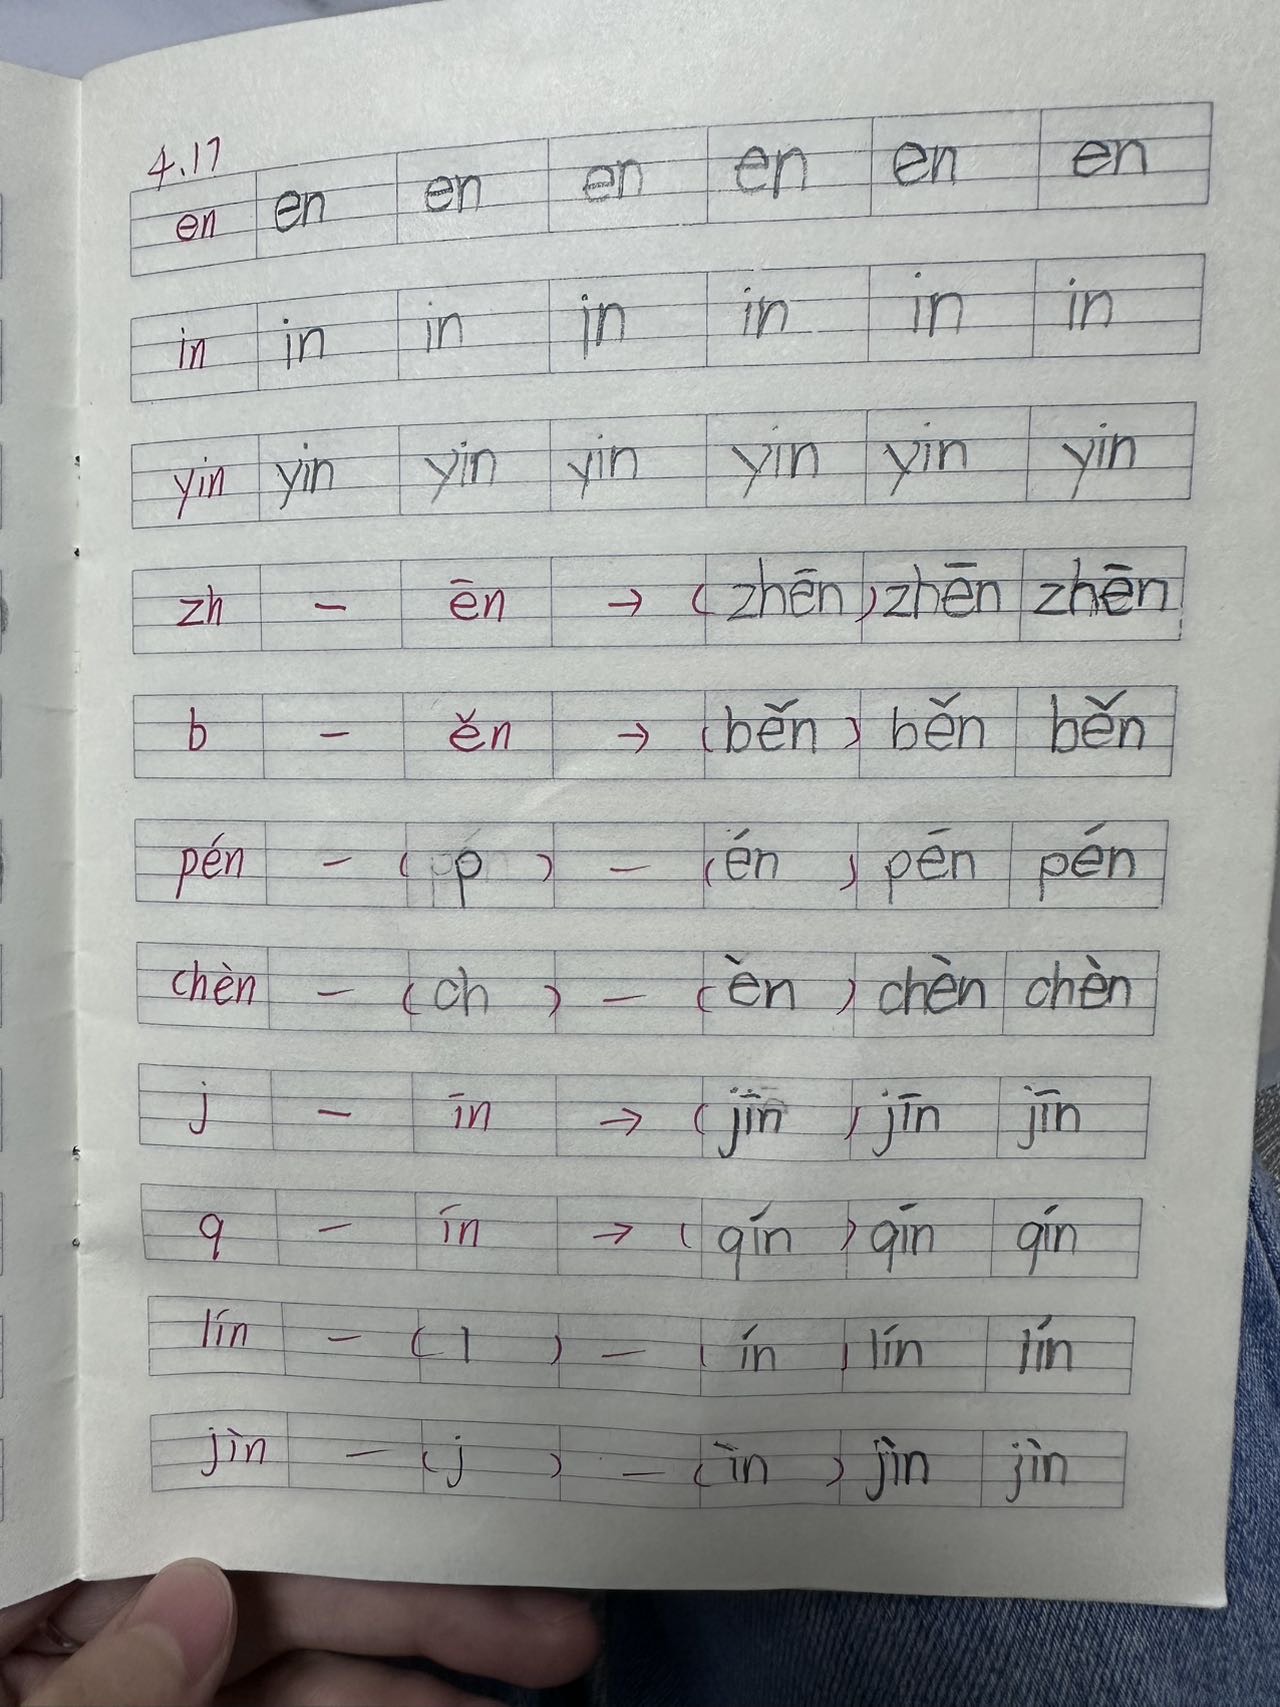 4.17
en en en en en en en
in in in in in in in
yin yin yin yin yin yin yin
zh — ēn → (zhēn) zhēn zhēn
b — ěn → (běn) běn běn
pén — (p) — (én) pén pén
chèn — (ch) — (èn) chèn chèn
j — īn → (jīn) jīn jīn
q — ín → (qín) qín qín
lín — (l) — (ín) lín lín
jìn — (j) — (ìn) jìn jìn